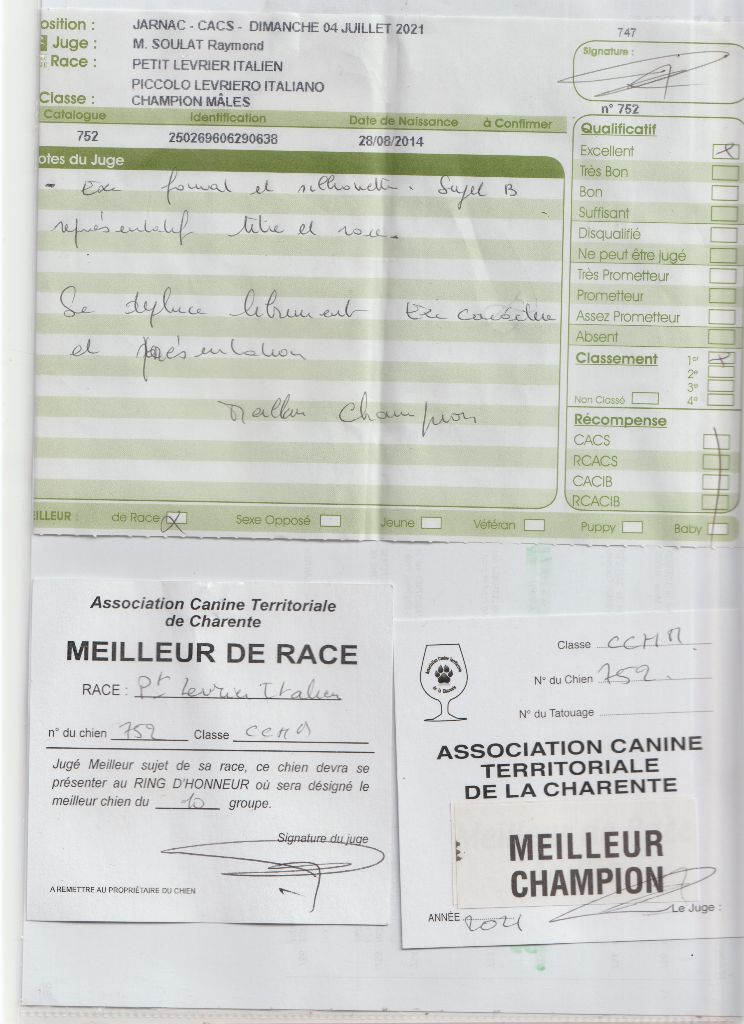 osition : JARNAC - CACS - DIMANCHE 04 JUILLET 2021
Juge : M. SOULAT Raymond
Race : PETIT LEVRIER ITALIEN
PICCOLO LEVRIERO ITALIANO
Classe : CHAMPION MÂLES
747
Signature :
n° 752
Catalogue Identification Date de Naissance à Confirmer
752 250269606290638 28/08/2014
otes du Juge
- Exc format et silhouette. Sujet B
représentatif titre et race.
Se déplace librement Exc caractère
et présentation
Meilleur Champion
Qualificatif
Excellent X
Très Bon
Bon
Suffisant
Disqualifié
Ne peut être jugé
Très Prometteur
Prometteur
Assez Prometteur
Absent
Classement 1er X
2e
3e
Non Classé 4e
Récompense
CACS
RCACS
CACIB
RCACIB
EILLEUR : de Race X Sexe Opposé Jeune Vétéran Puppy Baby
Association Canine Territoriale
de Charente
MEILLEUR DE RACE
RACE : Pt Levrier Italien
n° du chien 752 Classe CCHM
Jugé Meilleur sujet de sa race, ce chien devra se
présenter au RING D'HONNEUR où sera désigné le
meilleur chien du 10 groupe.
Signature du juge
A REMETTRE AU PROPRIÉTAIRE DU CHIEN
Classe CCHM
N° du Chien 752
N° du Tatouage
ASSOCIATION CANINE
TERRITORIALE
DE LA CHARENTE
MEILLEUR
CHAMPION
ANNÉE 2021 Le Juge :